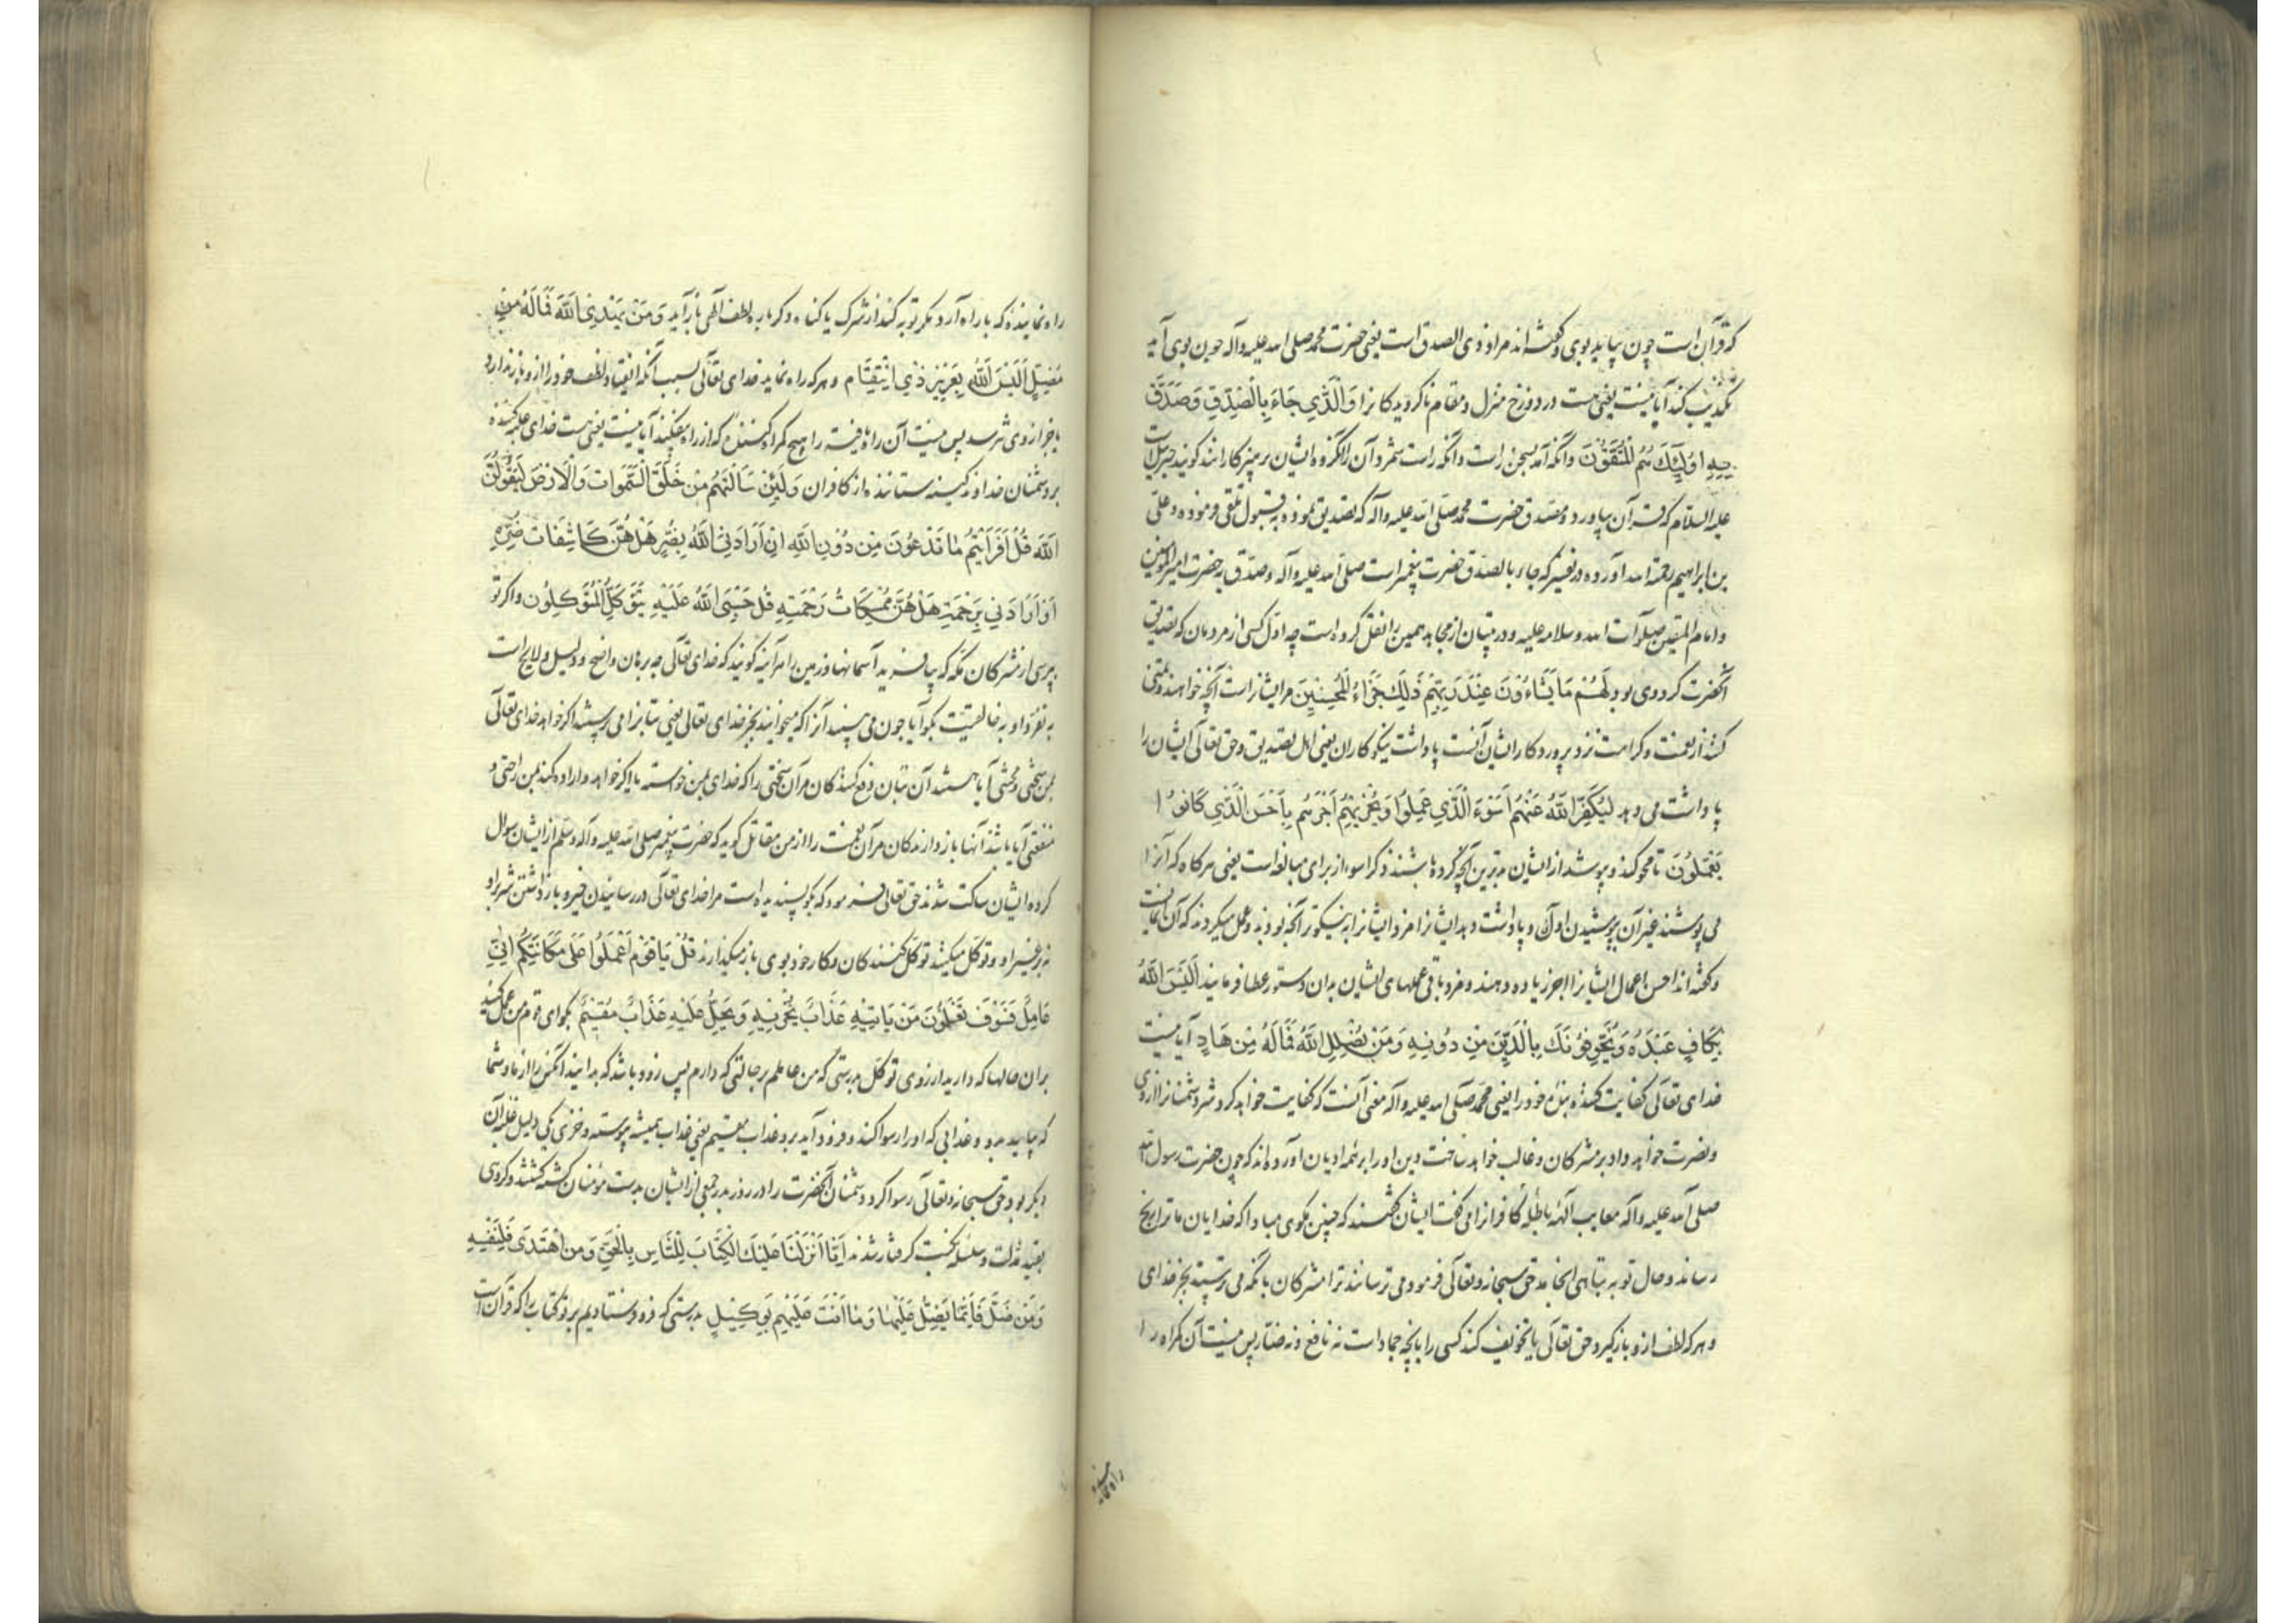 که قرآن است چون بیاید بوی و گفته‌اند مراد ذی الصدق است یعنی حضرت محمد صلی الله علیه وآله چون بوی آید
تکذیب کند آیا نیست یعنی هست در دوزخ منزل و مقام ناگرویدکانرا وَالَّذِي جَاءَ بِالصِّدْقِ وَصَدَّقَ
بِهِ اُولٰئِكَ هُمُ الْمُتَّقُونَ وآنکه آمد بسخن راست وآنکه راست شمرد آن را آنگروه ایشان پرهیزکارانند گویند جبرئیل است
علیه السلام که قرآن بیاورد و مصدق حضرت محمد صلی الله علیه وآله که تصدیق نموده بقبول تلقی فرموده و علی
بن ابراهیم رحمة الله آورده در تفسیر که جاء بالصدق حضرت پیغمبر است صلی الله علیه وآله و صدّق به حضرت امیر المؤمنین
و امام المتقین صلوات الله وسلامه علیه و در تبیان از مجاهد همین را نقل کرده است چه اول کسی از مردمان که تصدیق
آنحضرت کرد وی بود لَهُمْ مَا يَشَاءُونَ عِنْدَ رَبِّهِمْ ذٰلِكَ جَزَاءُ الْمُحْسِنِينَ مر ایشانراست آنچه خواهند و تمنی
کنند از نعمت و کرامت نزد پروردکار ایشان آنست پاداشت نیکوکاران یعنی اهل تصدیق و حق تعالی ایشان را
پاداشت می دهد لِيُكَفِّرَ اللّٰهُ عَنْهُمْ اَسْوَءَ الَّذِي عَمِلُوا وَيَجْزِيَهُمْ اَجْرَهُمْ بِاَحْسَنِ الَّذِي كَانُوا
يَعْمَلُونَ تا محو کند و بپوشد از ایشان بدترین آنچه کرده باشند ذکر اسوء از برای مبالغه است یعنی هرکاه که آنرا
می پوشند غیر آن بپوشیدن اولی و پاداشت دهد ایشانرا مزد ایشانرا به نیکوتر آنچه بودند و عمل میکردند که آن
و گفته‌اند احسن اعمال ایشانرا اجر زیاده دهند و مزد باقی عملهای ایشان بدان دستور عطا فرمایند اَلَيْسَ اللّٰهُ
بِكَافٍ عَبْدَهُ وَيُخَوِّفُونَكَ بِالَّذِينَ مِنْ دُونِهِ وَمَنْ يُضْلِلِ اللّٰهُ فَمَا لَهُ مِنْ هَادٍ آیا نیست
خدای تعالی کفایت کننده بنده خود را یعنی محمد صلی الله علیه وآله معنی آنست که کفایت خواهد کرد شر دشمنانرا از وی
و نصرت خواهد داد بر مشرکان و غالب خواهد ساخت دین او را بر همه ادیان آورده‌اند که چون حضرت رسول الله
صلی الله علیه وآله معایب آلهه باطله کافرانرا می گفت ایشان گفتند که چنین مگوی مبادا که خدایان ما ترا رنج
رساند و حال تو به تباهی انجامد حق سبحانه وتعالی فرمود می ترسانند ترا مشرکان بآنکه می پرستند بجز خدای
و هر که لطف از و باز گیرد حق تعالی یا تخویف کند کسی را بآنچه جماد است نه نافع و نه ضار پس نیست آن گمراه را
راه نماینده
راه نماینده که باراه آرد مگر توبه کند از شرک یا گناه و گر باره لطف الهی باز آید وَمَنْ يَهْدِي اللّٰهُ فَمَا لَهُ مِنْ
مُضِلٍّ اَلَيْسَ اللّٰهُ بِعَزِيزٍ ذِي انْتِقَامٍ و هر که راه نماید خدای تعالی بسبب آنکه انقیاد لطف خود را از و باز ندارد
پس نیست آن راه یافته را هیچ گمراه کننده که از راه بیفکند آیا نیست یعنی هست خدای غلبه کننده
بر دشمنان خداوند کینه ستاننده از کافران وَلَئِنْ سَاَلْتَهُمْ مَنْ خَلَقَ السَّمٰوَاتِ وَالْاَرْضَ لَيَقُولُنَّ
اللّٰهُ قُلْ اَفَرَاَيْتُمْ مَا تَدْعُونَ مِنْ دُونِ اللّٰهِ اِنْ اَرَادَنِيَ اللّٰهُ بِضُرٍّ هَلْ هُنَّ كَاشِفَاتُ ضُرِّهِ
اَوْ اَرَادَنِي بِرَحْمَةٍ هَلْ هُنَّ مُمْسِكَاتُ رَحْمَتِهِ قُلْ حَسْبِيَ اللّٰهُ عَلَيْهِ يَتَوَكَّلُ الْمُتَوَكِّلُونَ واکر تو
بپرسی از مشرکان مکه که بیافرید آسمانها و زمین را هر آینه گویند که خدای تعالی چه برهان واضح و دلیل لایح است
به تفرد او به خالقیت بگو آیا چون می بینید آنرا که میخوانید بجز خدای تعالی یعنی بتانرا می پرستید اکر خواهد خدای تعالی
بمن سختی و محنتی آیا هستند آن بتان دفع کنندکان مر آن سختی را که خدای بمن خواسته یا اکر خواهد و اراده کند بمن راحتی و
منفعتی آیا باشند آنها بازدارندکان مر آن نعمت را از من مقاتل گوید که حضرت پیغمبر صلی الله علیه وآله وسلم از ایشان سوال
کرده ایشان ساکت شدند حق تعالی فرمود که بگو بسنده است مرا خدای تعالی در رسانیدن خیر و باز داشتن شر براو
نه بر غیر او و توکل میکنند توکل کنندکان و کار خود بوی باز میگذارند قُلْ يَا قَوْمِ اعْمَلُوا عَلٰى مَكَانَتِكُمْ اِنِّي
عَامِلٌ فَسَوْفَ تَعْلَمُونَ مَنْ يَاْتِيهِ عَذَابٌ يُخْزِيهِ وَيَحِلُّ عَلَيْهِ عَذَابٌ مُقِيمٌ بگو ای قوم من عمل کنید
بران حالها که دارید از روی توکل بدرستی که من عاملم بر حالتی که دارم پس زود باشد که بدانید آنکس را از ما و شما
که بیاید بدو و عذابی که او را رسوا کند و فرود آید برو عذاب مقیم یعنی عذاب همیشه پیوسته و خزی یکی دلیل غلبه آن
دیگر بود حق سبحانه وتعالی رسوا کرد دشمنان آنحضرت را در روز بدر جمعی از ایشان بدست مؤمنان کشته گشتند و کروهی
بقید مذلت و سلسله نکبت گرفتار شدند اِنَّا اَنْزَلْنَا عَلَيْكَ الْكِتَابَ لِلنَّاسِ بِالْحَقِّ وَمَنِ اهْتَدٰى فَلِنَفْسِهِ
وَمَنْ ضَلَّ فَاِنَّمَا يَضِلُّ عَلَيْهَا وَمَا اَنْتَ عَلَيْهِمْ بِوَكِيلٍ بدرستی که فرو فرستادیم بر تو کتاب را که قرآن است